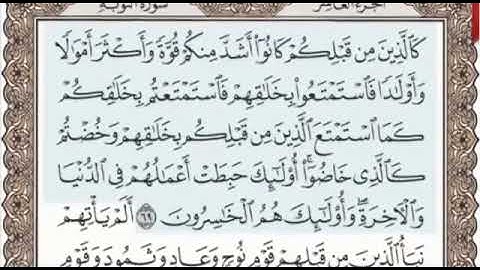 سورة التوبة الجزء العاشر
كَٱلَّذِينَ مِن قَبۡلِكُمۡ كَانُوٓاْ أَشَدَّ مِنكُمۡ قُوَّةٗ وَأَكۡثَرَ أَمۡوَٰلٗا
وَأَوۡلَٰدٗا فَٱسۡتَمۡتَعُواْ بِخَلَٰقِهِمۡ فَٱسۡتَمۡتَعۡتُم بِخَلَٰقِكُمۡ
كَمَا ٱسۡتَمۡتَعَ ٱلَّذِينَ مِن قَبۡلِكُم بِخَلَٰقِهِمۡ وَخُضۡتُمۡ
كَٱلَّذِي خَاضُوٓاْۚ أُوْلَٰٓئِكَ حَبِطَتۡ أَعۡمَٰلُهُمۡ فِي ٱلدُّنۡيَا
وَٱلۡأٓخِرَةِۖ وَأُوْلَٰٓئِكَ هُمُ ٱلۡخَٰسِرُونَ ٦٩ أَلَمۡ يَأۡتِهِمۡ
نَبَأُ ٱلَّذِينَ مِن قَبۡلِهِمۡ قَوۡمِ نُوحٖ وَعَادٖ وَثَمُودَ وَقَوۡمِ